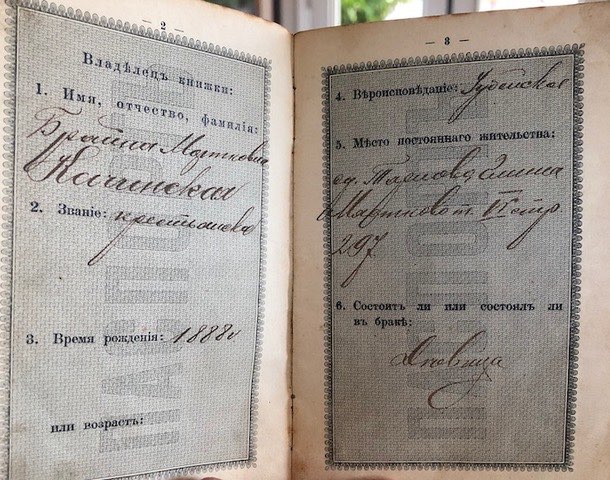 — 2 —
Владѣлецъ книжки:
1. Имя, отчество, фамилія:
Брайна Мортковна
Качинская
2. Званіе: крестьянка
3. Время рожденія: 1888 г
или возрастъ:
— 3 —
4. Вѣроисповѣданіе: Іудейская
5. Мѣсто постояннаго жительства:
297
6. Состоитъ ли или состоялъ ли
въ бракѣ:
Дѣвица